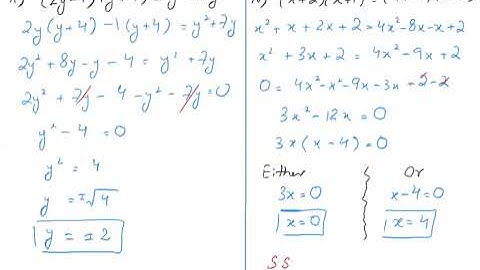 2y(y+4)-1(y+4) = y²+7y
2y²+8y-y-4 = y²+7y
2y²+7y-4-y²-7y=0
y²-4 = 0
y² = 4
y = ±√4
y = ±2
x²+x+2x+2 = 4x²-8x-x+2
x²+3x+2 = 4x²-9x+2
0 = 4x²-x²-9x-3x+2-2
3x²-12x=0
3x(x-4)=0
Either Or
3x=0 x-4=0
x=0 x=4
S S